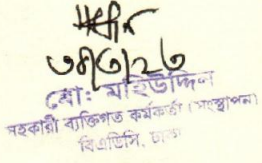 মো: মহিউদ্দিন
সহকারী ব্যক্তিগত কর্মকর্তা (সংস্থাপন)
বিএডিসি, ঢাকা